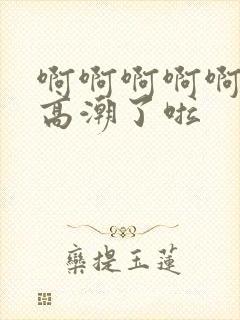 啊啊啊啊啊
高潮了啦
栾提玉莲